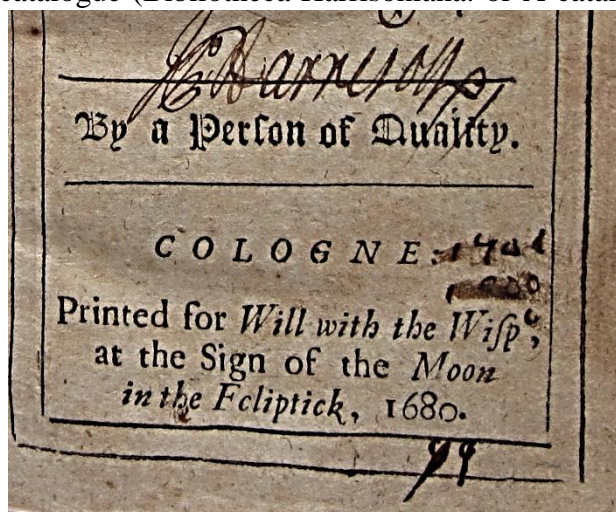 catalogue (Bibliotheca Harrisoniana: or A catal
Harrison
By a Perſon of Quality.
COLOGNE:
Printed for Will with the Wiſp,
at the Sign of the Moon
in the Ecliptick, 1680.